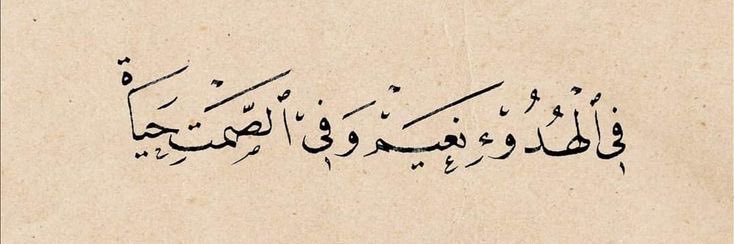 في ٱلْهُدُوْءِ نَعِيمْ وَفِي ٱلصَّمْتِ حَيَاة